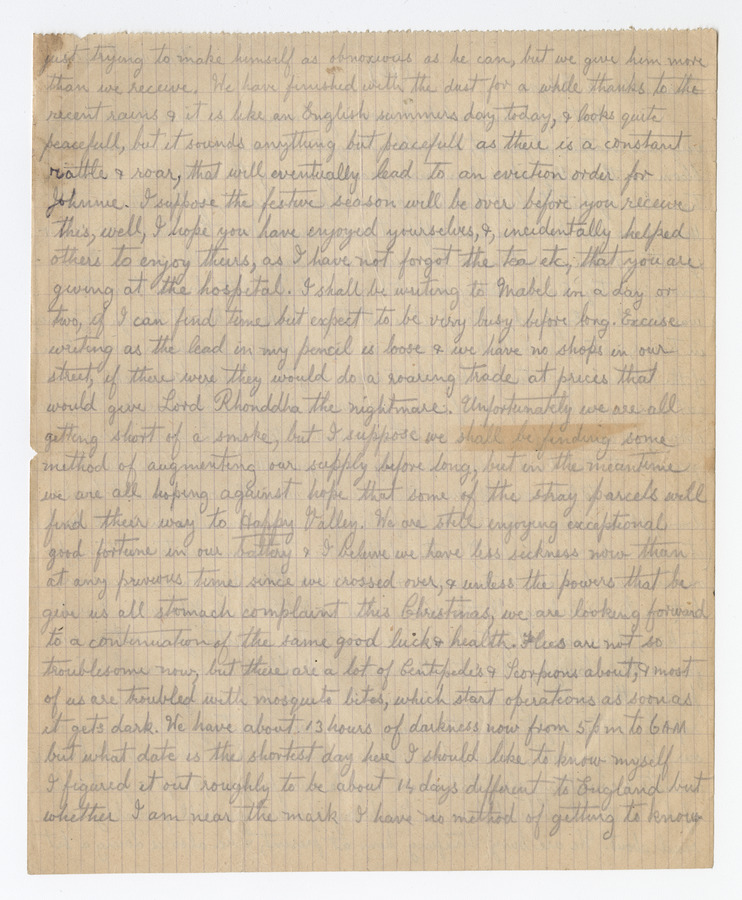 just trying to make himself as obnoxious as he can, but we give him more
than we receive. We have finished with the dust for a while thanks to the
recent rains & it is like an English summers day today, & looks quite
peacefull, but it sounds anything but peacefull as there is a constant
rattle & roar, that will eventually lead to an eviction order for
Johnnie. I suppose the festive season will be over before you receive
this, well, I hope you have enjoyed yourselves, &, incidentally helped
others to enjoy theirs, as I have not forgot the tea etc, that you are
giving at the hospital. I shall be writing to Mabel in a day or
two, if I can find time but expect to be very busy before long. Excuse
writing as the lead in my pencil is loose & we have no shops in our
street, if there were they would do a roaring trade at prices that
would give Lord Rhonddha the nightmare. Unfortunately we are all
getting short of a smoke, but I suppose we shall be finding some
method of augmenting our supply before long, but in the meantime
we are all hoping against hope that some of the stray parcels will
find their way to Happy Valley. We are still enjoying exceptional
good fortune in our battery & I believe we have less sickness now than
at any previous time since we crossed over, & unless the powers that be
give us all stomach complaint this Christmas, we are looking forward
to a continuation of the same good luck & health. Flies are not so
troublesome now, but there are a lot of Centipedes & Scorpions about, & most
of us are troubled with mosquito bites, which start operations as soon as
it gets dark. We have about 13 hours of darkness now from 5 pm to 6 AM
but what date is the shortest day here I should like to know myself
I figured it out roughly to be about days different to England but
whether I am near the mark I have no method of getting to know